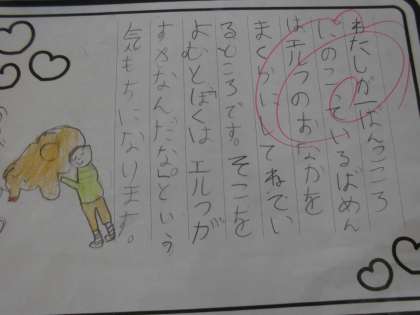 わたしが一ばんこころ
にのこっているばめん
はエルフのおなかを
まくらにしてねてい
るところです。そこを
よむとぼくは エルフが
すきなんだな。」という
気もちになります。